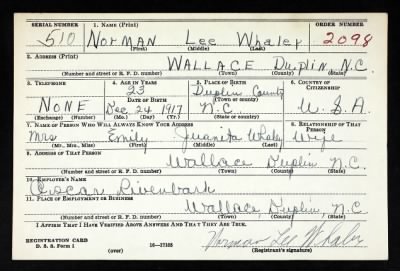 SERIAL NUMBER 1. NAME (Print) ORDER NUMBER
510 NORMAN Lee Whaley 2098
(First) (Middle) (Last)
2. ADDRESS (Print)
WALLACE Duplin, N.C
(Number and street or R. F. D. number) (Town) (County) (State)
3. TELEPHONE 4. AGE IN YEARS 5. PLACE OF BIRTH 6. COUNTRY OF CITIZENSHIP
23 Duplin County
DATE OF BIRTH (Town or county)
NONE Dec 24 1917 N.C. U.S.A
(Exchange) (Number) (Mo.) (Day) (Yr.) (State or country)
7. NAME OF PERSON WHO WILL ALWAYS KNOW YOUR ADDRESS 8. RELATIONSHIP OF THAT PERSON
Mrs Emily Juanita Whaley Wife
(Mr., Mrs., Miss) (First) (Middle) (Last)
9. ADDRESS OF THAT PERSON
Wallace Duplin N.C.
(Number and street or R. F. D. number) (Town) (County) (State)
10. EMPLOYER'S NAME
Oscar Rivenbark
11. PLACE OF EMPLOYMENT OR BUSINESS
Wallace, Duplin N.C
(Number and street or R. F. D. number) (Town) (County) (State)
I AFFIRM THAT I HAVE VERIFIED ABOVE ANSWERS AND THAT THEY ARE TRUE.
REGISTRATION CARD
D. S. S. Form 1 16—17105 Norman Lee Whaley
(over) (Registrant's signature)